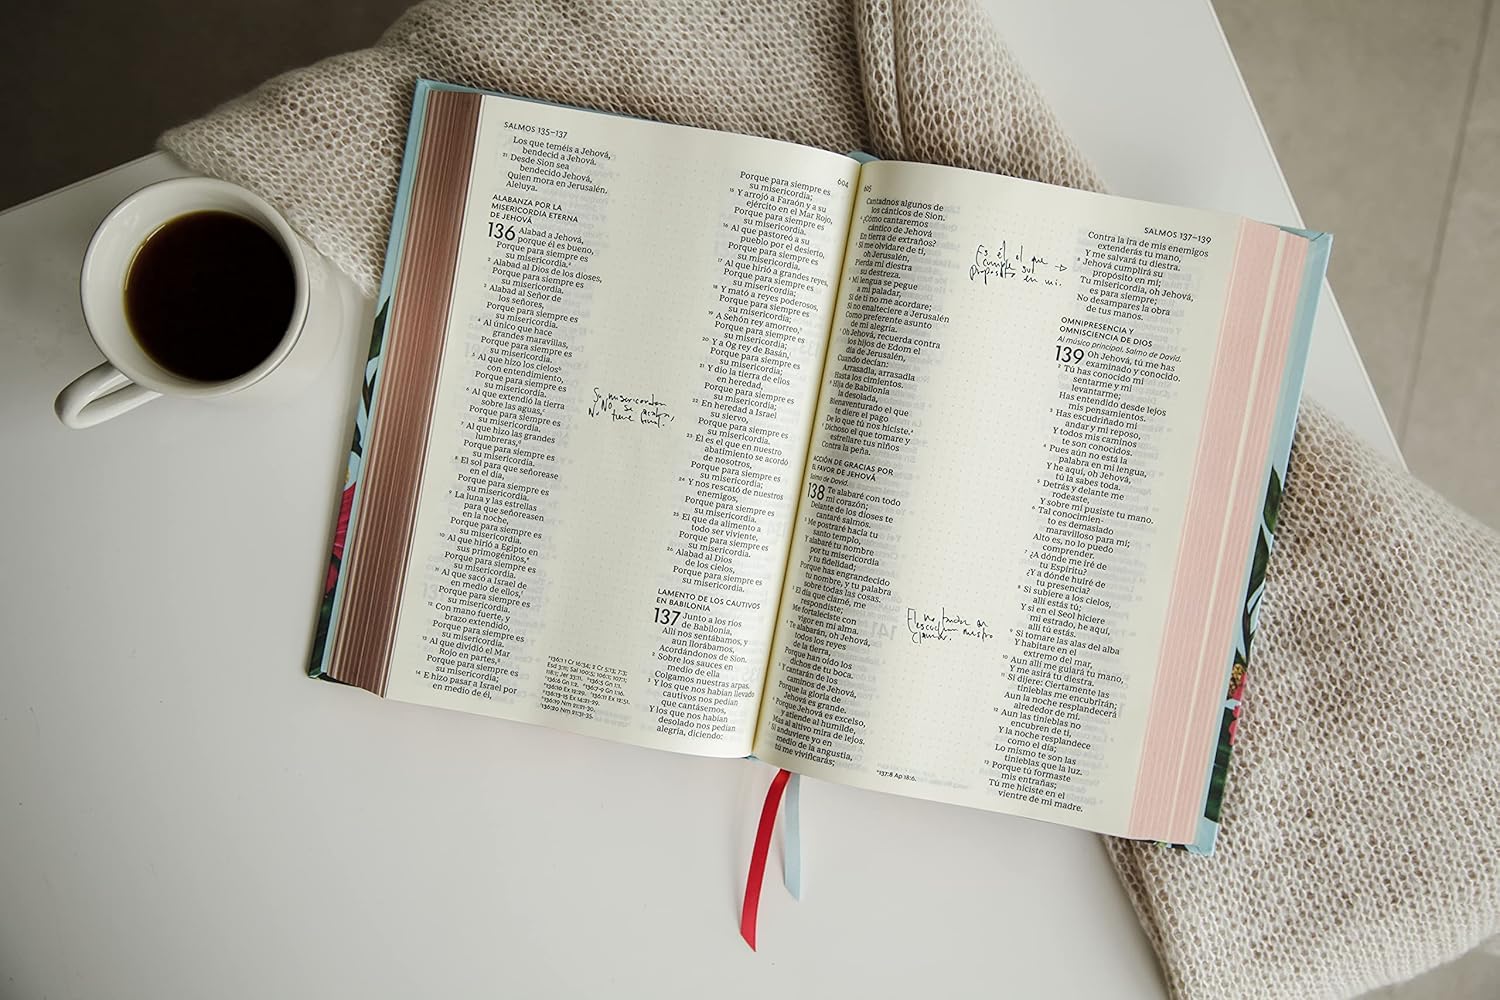 SALMOS 135–137
Los que teméis a Jehová,
bendecid a Jehová.
21 Desde Sion sea
bendecido Jehová,
Quien mora en Jerusalén.
Aleluya.
ALABANZA POR LA
MISERICORDIA ETERNA
DE JEHOVÁ
136 Alabad a Jehová,
porque él es bueno,
Porque para siempre es
su misericordia.
2 Alabad al Dios de los dioses,
Porque para siempre es
su misericordia.
3 Alabad al Señor de
los señores,
Porque para siempre es
su misericordia.
4 Al único que hace
grandes maravillas,
Porque para siempre es
su misericordia.
5 Al que hizo los cielos
con entendimiento,
Porque para siempre es
su misericordia.
6 Al que extendió la tierra
sobre las aguas,
Porque para siempre es
su misericordia.
7 Al que hizo las grandes
lumbreras,
Porque para siempre es
su misericordia.
8 El sol para que señorease
en el día,
Porque para siempre es
su misericordia.
9 La luna y las estrellas
para que señoreasen
en la noche,
Porque para siempre es
su misericordia.
10 Al que hirió a Egipto en
sus primogénitos,
Porque para siempre es
su misericordia.
11 Al que sacó a Israel de
en medio de ellos,
Porque para siempre es
su misericordia.
12 Con mano fuerte, y
brazo extendido,
Porque para siempre es
su misericordia.
13 Al que dividió el Mar
Rojo en partes,
Porque para siempre es
su misericordia;
14 E hizo pasar a Israel por
en medio de él,
Su misericordia
No, se acaba,
No tiene
604
Porque para siempre es
su misericordia;
15 Y arrojó a Faraón y a su
ejército en el Mar Rojo,
Porque para siempre es
su misericordia.
16 Al que pastoreó a su
pueblo por el desierto,
Porque para siempre es
su misericordia.
17 Al que hirió a grandes reyes,
Porque para siempre es
su misericordia;
18 Y mató a reyes poderosos,
Porque para siempre es
su misericordia;
19 A Sehón rey amorreo,
Porque para siempre es
su misericordia;
20 Y a Og rey de Basán,
Porque para siempre es
su misericordia;
21 Y dio la tierra de ellos
en heredad,
Porque para siempre es
su misericordia;
22 En heredad a Israel
su siervo,
Porque para siempre es
su misericordia.
23 Él es el que en nuestro
abatimiento se acordó
de nosotros,
Porque para siempre es
su misericordia;
24 Y nos rescató de nuestros
enemigos,
Porque para siempre es
su misericordia.
25 El que da alimento a
todo ser viviente,
Porque para siempre es
su misericordia.
26 Alabad al Dios
de los cielos,
Porque para siempre es
su misericordia.
LAMENTO DE LOS CAUTIVOS
EN BABILONIA
137 Junto a los ríos
de Babilonia,
Allí nos sentábamos, y
aun llorábamos,
Acordándonos de Sion.
2 Sobre los sauces en
medio de ella
Colgamos nuestras arpas.
3 Y los que nos habían llevado
cautivos nos pedían
que cantásemos,
Y los que nos habían
desolado nos pedían
alegría, diciendo:
605
Cantadnos algunos de
los cánticos de Sion.
4 ¿Cómo cantaremos
cántico de Jehová
En tierra de extraños?
5 Si me olvidare de ti,
oh Jerusalén,
Pierda mi diestra
su destreza.
6 Mi lengua se pegue
a mi paladar,
Si de ti no me acordare;
Si no enalteciere a Jerusalén
Como preferente asunto
de mi alegría.
7 Oh Jehová, recuerda contra
los hijos de Edom el
día de Jerusalén,
Cuando decían:
Arrasadla, arrasadla
Hasta los cimientos.
8 Hija de Babilonia
la desolada,
Bienaventurado el que
te diere el pago
De lo que tú nos hiciste.
9 Dichoso el que tomare y
estrellare tus niños
Contra la peña.
ACCIÓN DE GRACIAS POR
EL FAVOR DE JEHOVÁ
Salmo de David.
138 Te alabaré con todo
mi corazón;
Delante de los dioses te
cantaré salmos.
2 Me postraré hacia tu
santo templo,
Y alabaré tu nombre
por tu misericordia
y tu fidelidad;
Porque has engrandecido
tu nombre, y tu palabra
sobre todas las cosas.
3 El día que clamé, me
respondiste;
Me fortaleciste con
vigor en mi alma.
4 Te alabarán, oh Jehová,
todos los reyes
de la tierra,
Porque han oído los
dichos de tu boca.
5 Y cantarán de los
caminos de Jehová,
Porque la gloria de
Jehová es grande.
6 Porque Jehová es excelso,
y atiende al humilde,
Mas al altivo mira de lejos.
7 Si anduviere yo en
medio de la angustia,
tú me vivificarás;
Es él el que →
cumplirá su
propósito en mi.
escuchar nuestro
clamor.
137:8 Ap 18:6.
SALMOS 137–139
Contra la ira de mis enemigos
extenderás tu mano,
Y me salvará tu diestra.
8 Jehová cumplirá su
propósito en mí;
Tu misericordia, oh Jehová,
es para siempre;
No desampares la obra
de tus manos.
OMNIPRESENCIA Y
OMNISCIENCIA DE DIOS
Al músico principal. Salmo de David.
139 Oh Jehová, tú me has
examinado y conocido.
2 Tú has conocido mi
sentarme y mi
levantarme;
Has entendido desde lejos
mis pensamientos.
3 Has escudriñado mi
andar y mi reposo,
Y todos mis caminos
te son conocidos.
4 Pues aún no está la
palabra en mi lengua,
Y he aquí, oh Jehová,
tú la sabes toda.
5 Detrás y delante me
rodeaste,
Y sobre mí pusiste tu mano.
6 Tal conocimien-
to es demasiado
maravilloso para mí;
Alto es, no lo puedo
comprender.
7 ¿A dónde me iré de
tu Espíritu?
¿Y a dónde huiré de
tu presencia?
8 Si subiere a los cielos,
allí estás tú;
Y si en el Seol hiciere
mi estrado, he aquí,
allí tú estás.
9 Si tomare las alas del alba
Y habitare en el
extremo del mar,
10 Aun allí me guiará tu mano,
Y me asirá tu diestra.
11 Si dijere: Ciertamente las
tinieblas me encubrirán;
Aun la noche resplandecerá
alrededor de mí.
12 Aun las tinieblas no
encubren de ti,
Y la noche resplandece
como el día;
Lo mismo te son las
tinieblas que la luz.
13 Porque tú formaste
mis entrañas;
Tú me hiciste en el
vientre de mi madre.